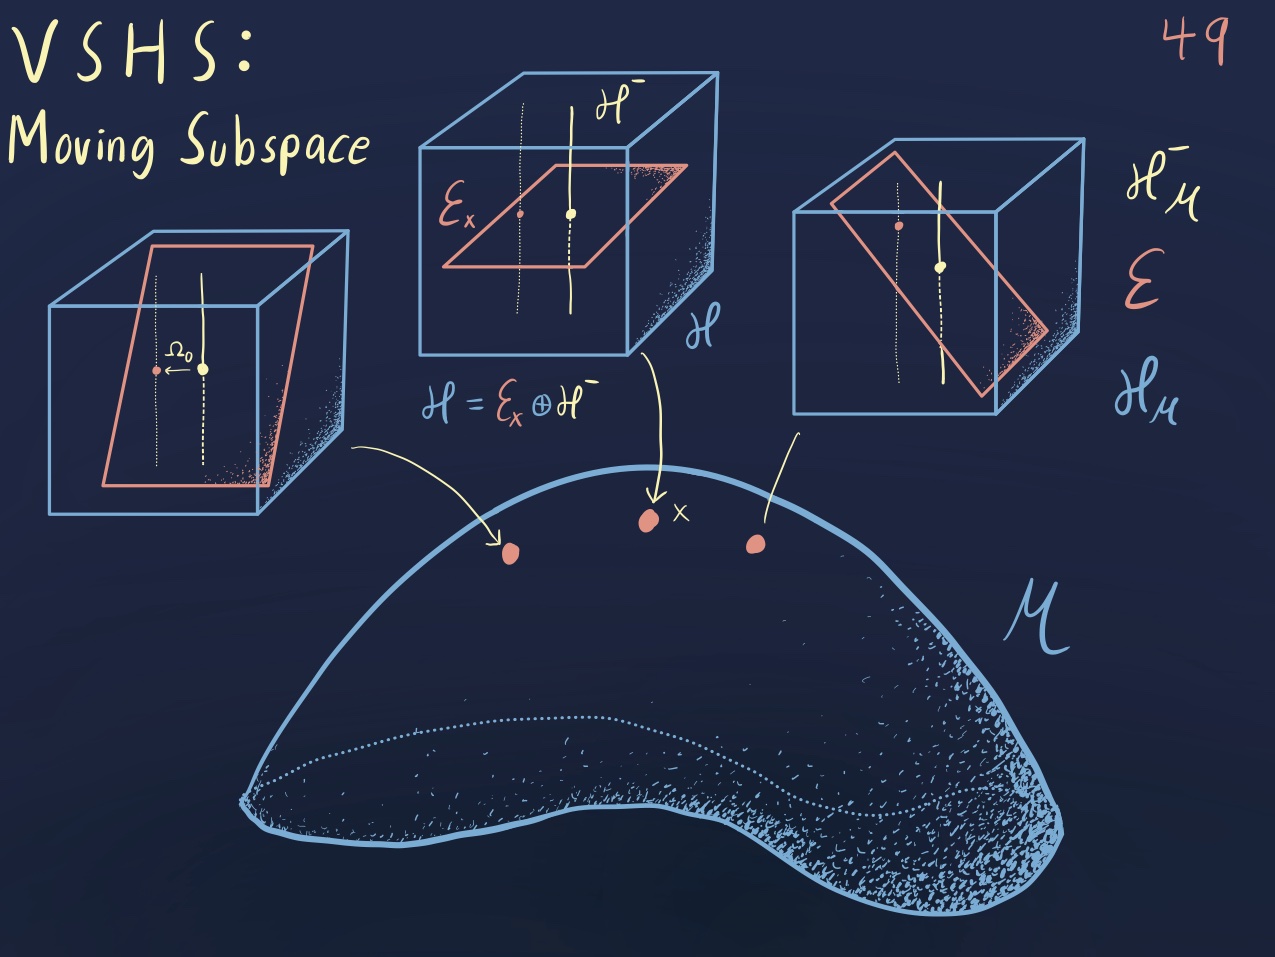 VSHS:
Moving Subspace
49
ℋ⁻
ℰₓ
ℋ
ℋ = ℰₓ ⊕ ℋ⁻
Ω₀
ℋ⁻_ℳ
ℰ
ℋ_ℳ
x
ℳ